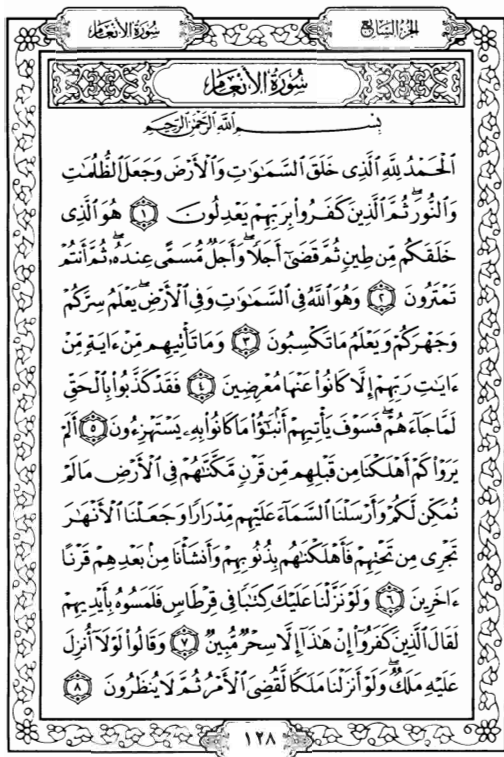 سُورَةُ الأَنْعَام
الجُزْءُ السَّابِع
سُورَةُ الأَنْعَام
بِسْمِ اللَّهِ الرَّحْمَٰنِ الرَّحِيمِ
ٱلْحَمْدُ لِلَّهِ ٱلَّذِى خَلَقَ ٱلسَّمَٰوَٰتِ وَٱلْأَرْضَ وَجَعَلَ ٱلظُّلُمَٰتِ
وَٱلنُّورَۖ ثُمَّ ٱلَّذِينَ كَفَرُوا۟ بِرَبِّهِمْ يَعْدِلُونَ ١ هُوَ ٱلَّذِى
خَلَقَكُم مِّن طِينٍ ثُمَّ قَضَىٰٓ أَجَلًاۖ وَأَجَلٌ مُّسَمًّى عِندَهُۥۖ ثُمَّ أَنتُمْ
تَمْتَرُونَ ٢ وَهُوَ ٱللَّهُ فِى ٱلسَّمَٰوَٰتِ وَفِى ٱلْأَرْضِۖ يَعْلَمُ سِرَّكُمْ
وَجَهْرَكُمْ وَيَعْلَمُ مَا تَكْسِبُونَ ٣ وَمَا تَأْتِيهِم مِّنْ ءَايَةٍ مِّنْ
ءَايَٰتِ رَبِّهِمْ إِلَّا كَانُوا۟ عَنْهَا مُعْرِضِينَ ٤ فَقَدْ كَذَّبُوا۟ بِٱلْحَقِّ
لَمَّا جَآءَهُمْۖ فَسَوْفَ يَأْتِيهِمْ أَنۢبَٰٓؤُا۟ مَا كَانُوا۟ بِهِۦ يَسْتَهْزِءُونَ ٥ أَلَمْ
يَرَوْا۟ كَمْ أَهْلَكْنَا مِن قَبْلِهِم مِّن قَرْنٍ مَّكَّنَّٰهُمْ فِى ٱلْأَرْضِ مَا لَمْ
نُمَكِّن لَّكُمْ وَأَرْسَلْنَا ٱلسَّمَآءَ عَلَيْهِم مِّدْرَارًا وَجَعَلْنَا ٱلْأَنْهَٰرَ
تَجْرِى مِن تَحْتِهِمْ فَأَهْلَكْنَٰهُم بِذُنُوبِهِمْ وَأَنشَأْنَا مِنۢ بَعْدِهِمْ قَرْنًا
ءَاخَرِينَ ٦ وَلَوْ نَزَّلْنَا عَلَيْكَ كِتَٰبًا فِى قِرْطَاسٍ فَلَمَسُوهُ بِأَيْدِيهِمْ
لَقَالَ ٱلَّذِينَ كَفَرُوٓا۟ إِنْ هَٰذَآ إِلَّا سِحْرٌ مُّبِينٌ ٧ وَقَالُوا۟ لَوْلَآ أُنزِلَ
عَلَيْهِ مَلَكٌۖ وَلَوْ أَنزَلْنَا مَلَكًا لَّقُضِىَ ٱلْأَمْرُ ثُمَّ لَا يُنظَرُونَ ٨
١٢٨